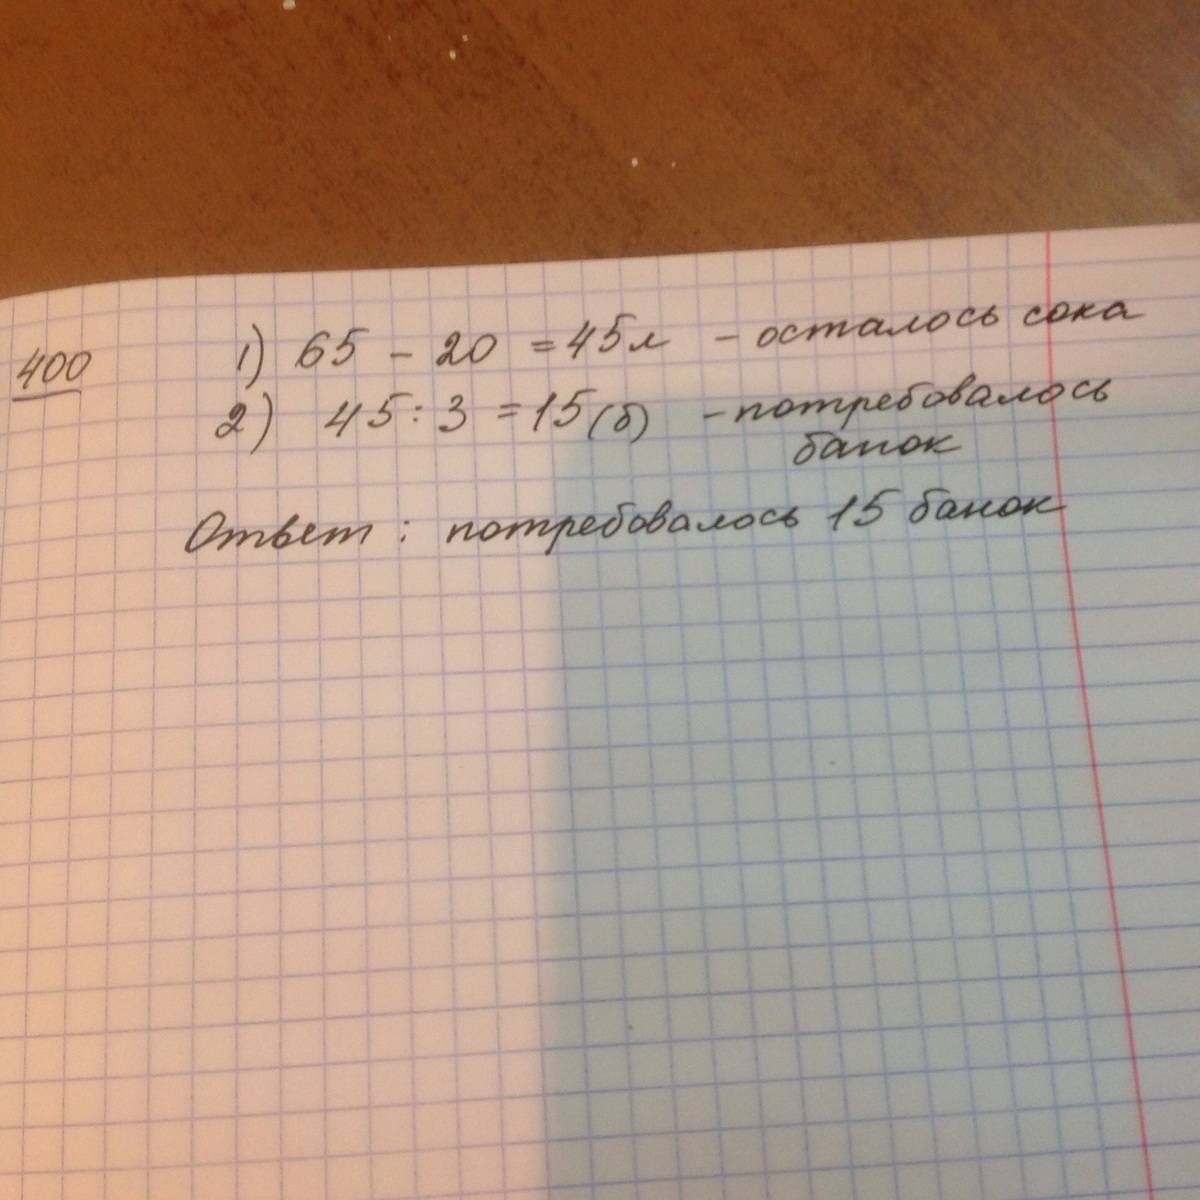 400
1) 65 - 20 = 45 л - осталось сока
2) 45 : 3 = 15 (б) - потребовалось
банок
Ответ : потребовалось 15 банок